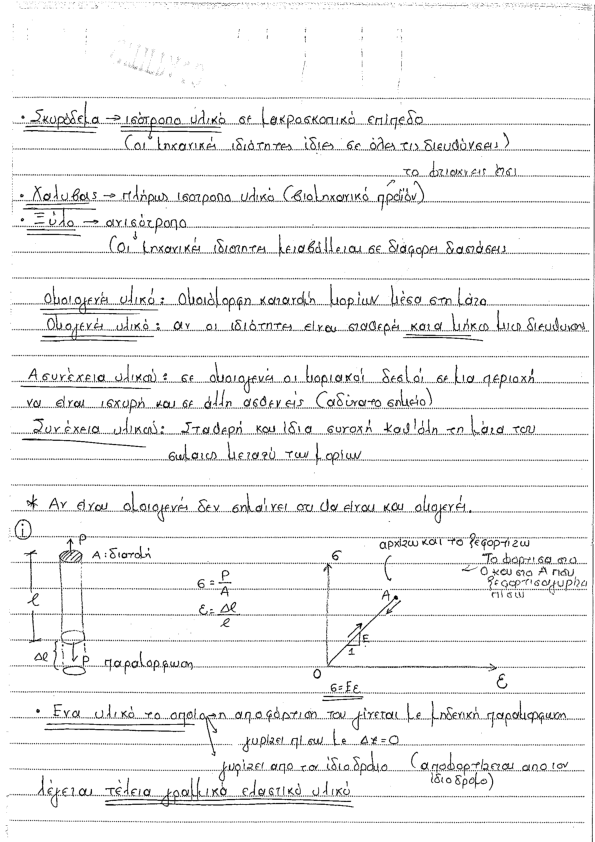 • Σκυρόδεμα → ισότροπο υλικό σε μακροσκοπικό επίπεδο
(οι μηχανικές ιδιότητες ίδιες σε όλες τις διευθύνσεις)
το φτιάχνεις έτσι
• Χάλυβας → πλήρως ισότροπο υλικό (βιομηχανικό προϊόν)
• Ξύλο → ανισότροπο
(οι μηχανικές ιδιότητες μεταβάλλεται σε διάφορες διαστάσεις
Ομοιογενές υλικό: Ομοιόμορφη κατανομή μορίων μέσα στη μάζα
Ομογενές υλικό: αν οι ιδιότητες είναι σταθερές κατά μήκος μιας διεύθυνσης
Ασυνέχεια υλικού: σε ομοιογενές οι μοριακοί δεσμοί σε μια περιοχή
να είναι ισχυρή και σε άλλη ασθενείς (αδύνατο σημείο)
Συνέχεια υλικού: Σταθερή και ίδια συνοχή καθ'όλη τη μάζα του
σώματος μεταξύ των μορίων
* Αν είναι ομοιογενές δεν σημαίνει οτι θα είναι και ομογενές.
i
P
A: διατομή
l
Δl
P
παραμόρφωση
σ = P/A
ε = Δl/l
αρχίζω και το ξεφορτίζω
Το φόρτισα στο
Ο και στο Α που
ξεφορτίσα γυρίζει
πίσω
σ
A
E
1
O
ε
σ=Eε
• Ένα υλικό το οποίο η αποφόρτιση του γίνεται με μηδενική παραμόρφωση
γυρίζει πίσω με Δε=0
γυρίζει απο τον ίδιο δρόμο (αποφορτίζεται απο τον
ίδιο δρόμο)
λέγεται τέλεια γραμμικό ελαστικό υλικό